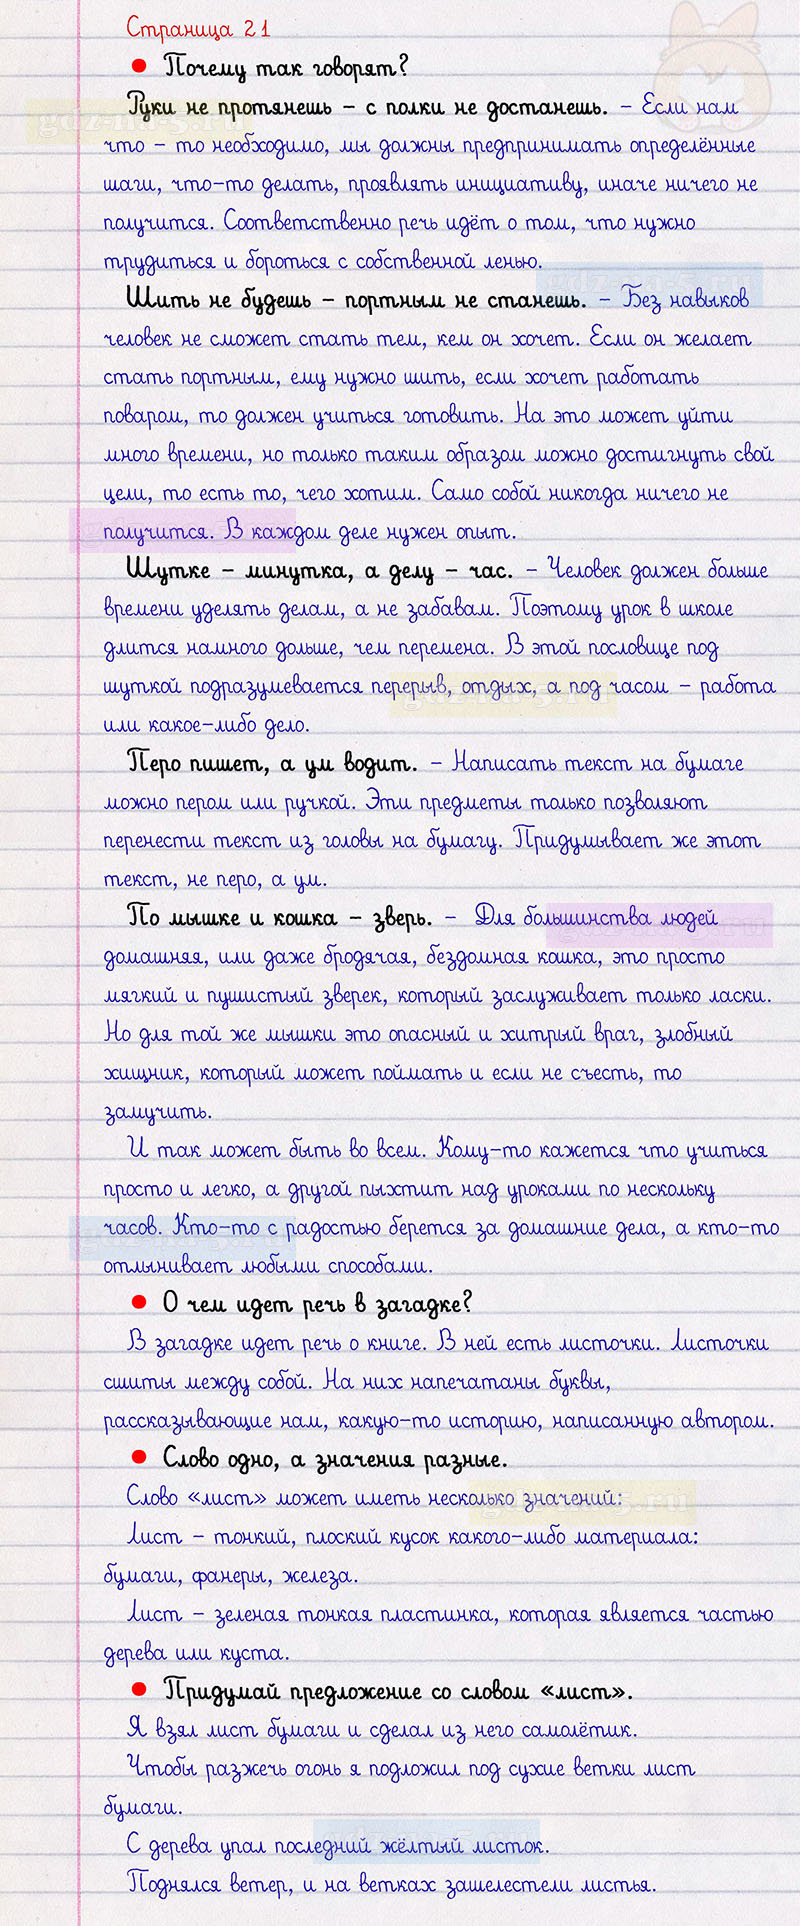 Страница 21
• Почему так говорят?
Руки не протянешь – с полки не достанешь. – Если нам
что – то необходимо, мы должны предпринимать определённые
шаги, что-то делать, проявлять инициативу, иначе ничего не
получится. Соответственно речь идёт о том, что нужно
трудиться и бороться с собственной ленью.
Шить не будешь – портным не станешь. – Без навыков
человек не сможет стать тем, кем он хочет. Если он желает
стать портным, ему нужно шить, если хочет работать
поваром, то должен учиться готовить. На это может уйти
много времени, но только таким образом можно достигнуть свой
цели, то есть то, чего хотим. Само собой никогда ничего не
получится. В каждом деле нужен опыт.
Шутке – минутка, а делу – час. – Человек должен больше
времени уделять делам, а не забавам. Поэтому урок в школе
длится намного дольше, чем перемена. В этой пословице под
шуткой подразумевается перерыв, отдых, а под часом – работа
или какое-либо дело.
Перо пишет, а ум водит. – Написать текст на бумаге
можно пером или ручкой. Эти предметы только позволяют
перенести текст из головы на бумагу. Придумывает же этот
текст, не перо, а ум.
По мышке и кошка – зверь. – Для большинства людей
домашняя, или даже бродячая, бездомная кошка, это просто
мягкий и пушистый зверек, который заслуживает только ласки.
Но для той же мышки это опасный и хитрый враг, злобный
хищник, который может поймать и если не съесть, то
замучить.
И так может быть во всем. Кому-то кажется что учиться
просто и легко, а другой пыхтит над уроками по нескольку
часов. Кто-то с радостью берется за домашние дела, а кто-то
отлынивает любыми способами.
• О чем идет речь в загадке?
В загадке идет речь о книге. В ней есть листочки. Листочки
сшиты между собой. На них напечатаны буквы,
рассказывающие нам, какую-то историю, написанную автором.
• Слово одно, а значения разные.
Слово «лист» может иметь несколько значений:
Лист – тонкий, плоский кусок какого-либо материала:
бумаги, фанеры, железа.
Лист – зеленая тонкая пластинка, которая является частью
дерева или куста.
• Придумай предложение со словом «лист».
Я взял лист бумаги и сделал из него самолётик.
Чтобы разжечь огонь я подложил под сухие ветки лист
бумаги.
С дерева упал последний жёлтый листок.
Поднялся ветер, и на ветках зашелестели листья.